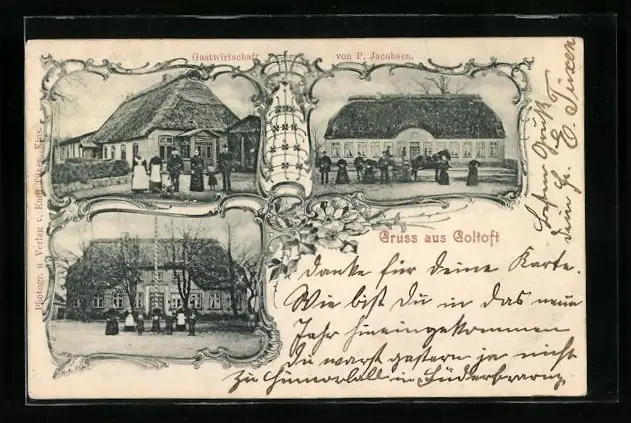 Gastwirtschaft von P. Jacobsen.
Photogr. u Verlag v. Emil Tüxen, Kius.
Gruss aus Goltoft
danke für deine Karte.
Wie bist Du in das neue
Jahr hineingekommen
du warst gestern ja nicht
in
Gruß
dein
Tüxen